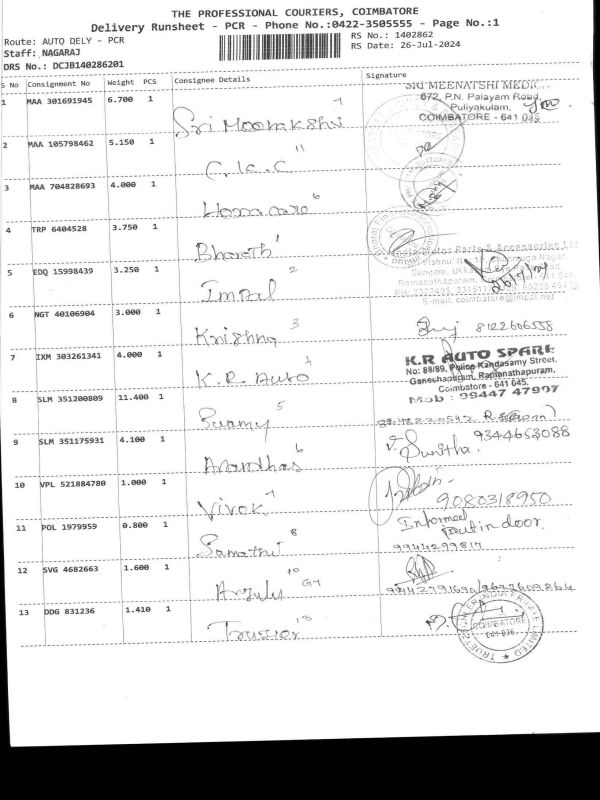 THE PROFESSIONAL COURIERS, COIMBATORE
Delivery Runsheet - PCR - Phone No.:0422-3505555 - Page No.:1
Route: AUTO DELY - PCR RS No.: 1402862
Staff: NAGARAJ RS Date: 26-Jul-2024
DRS No.: DCJB140286201
S No Consignment No Weight PCS Consignee Details Signature
1 MAA 301691945 6.700 1 Sri Meenakshi 7
SRI MEENATSHI MEDIC
672, P.N. Palayam Road,
Puliyakulam,
COIMBATORE - 641 045
2 MAA 105798462 5.150 1 11
3 MAA 704828693 4.000 1 Homacare 6
4 TRP 6404528 3.750 1 Bharath 1
Parts & Accessories Ltd
5 EDQ 15998439 3.250 1 Impal 2
Ramanathapuram,
26/7/24
E-mail: coimbatore@impal.net
6 NGT 40106904 3.000 1 Krishna 3 8122606558
7 IXM 303261341 4.000 1 K.R. Auto 4
K.R AUTO SPARE
No: 88/89, Police Kandasamy Street,
Ganeshapuram, Ramanathapuram,
Coimbatore - 641 045.
Mob : 99447 47907
8 SLM 351200809 11.400 1 Swamy 5
9 SLM 351175931 4.100 1 6 Sunitha. 9344653088
10 VPL 521884780 1.000 1 Vivek 7 9080318950
11 POL 1979959 0.800 1 8 Informed
Put in door
9944299817
12 SVG 4682663 1.600 1 10
13 DDG 831236 1.410 1 13
COIMBATORE
641 036